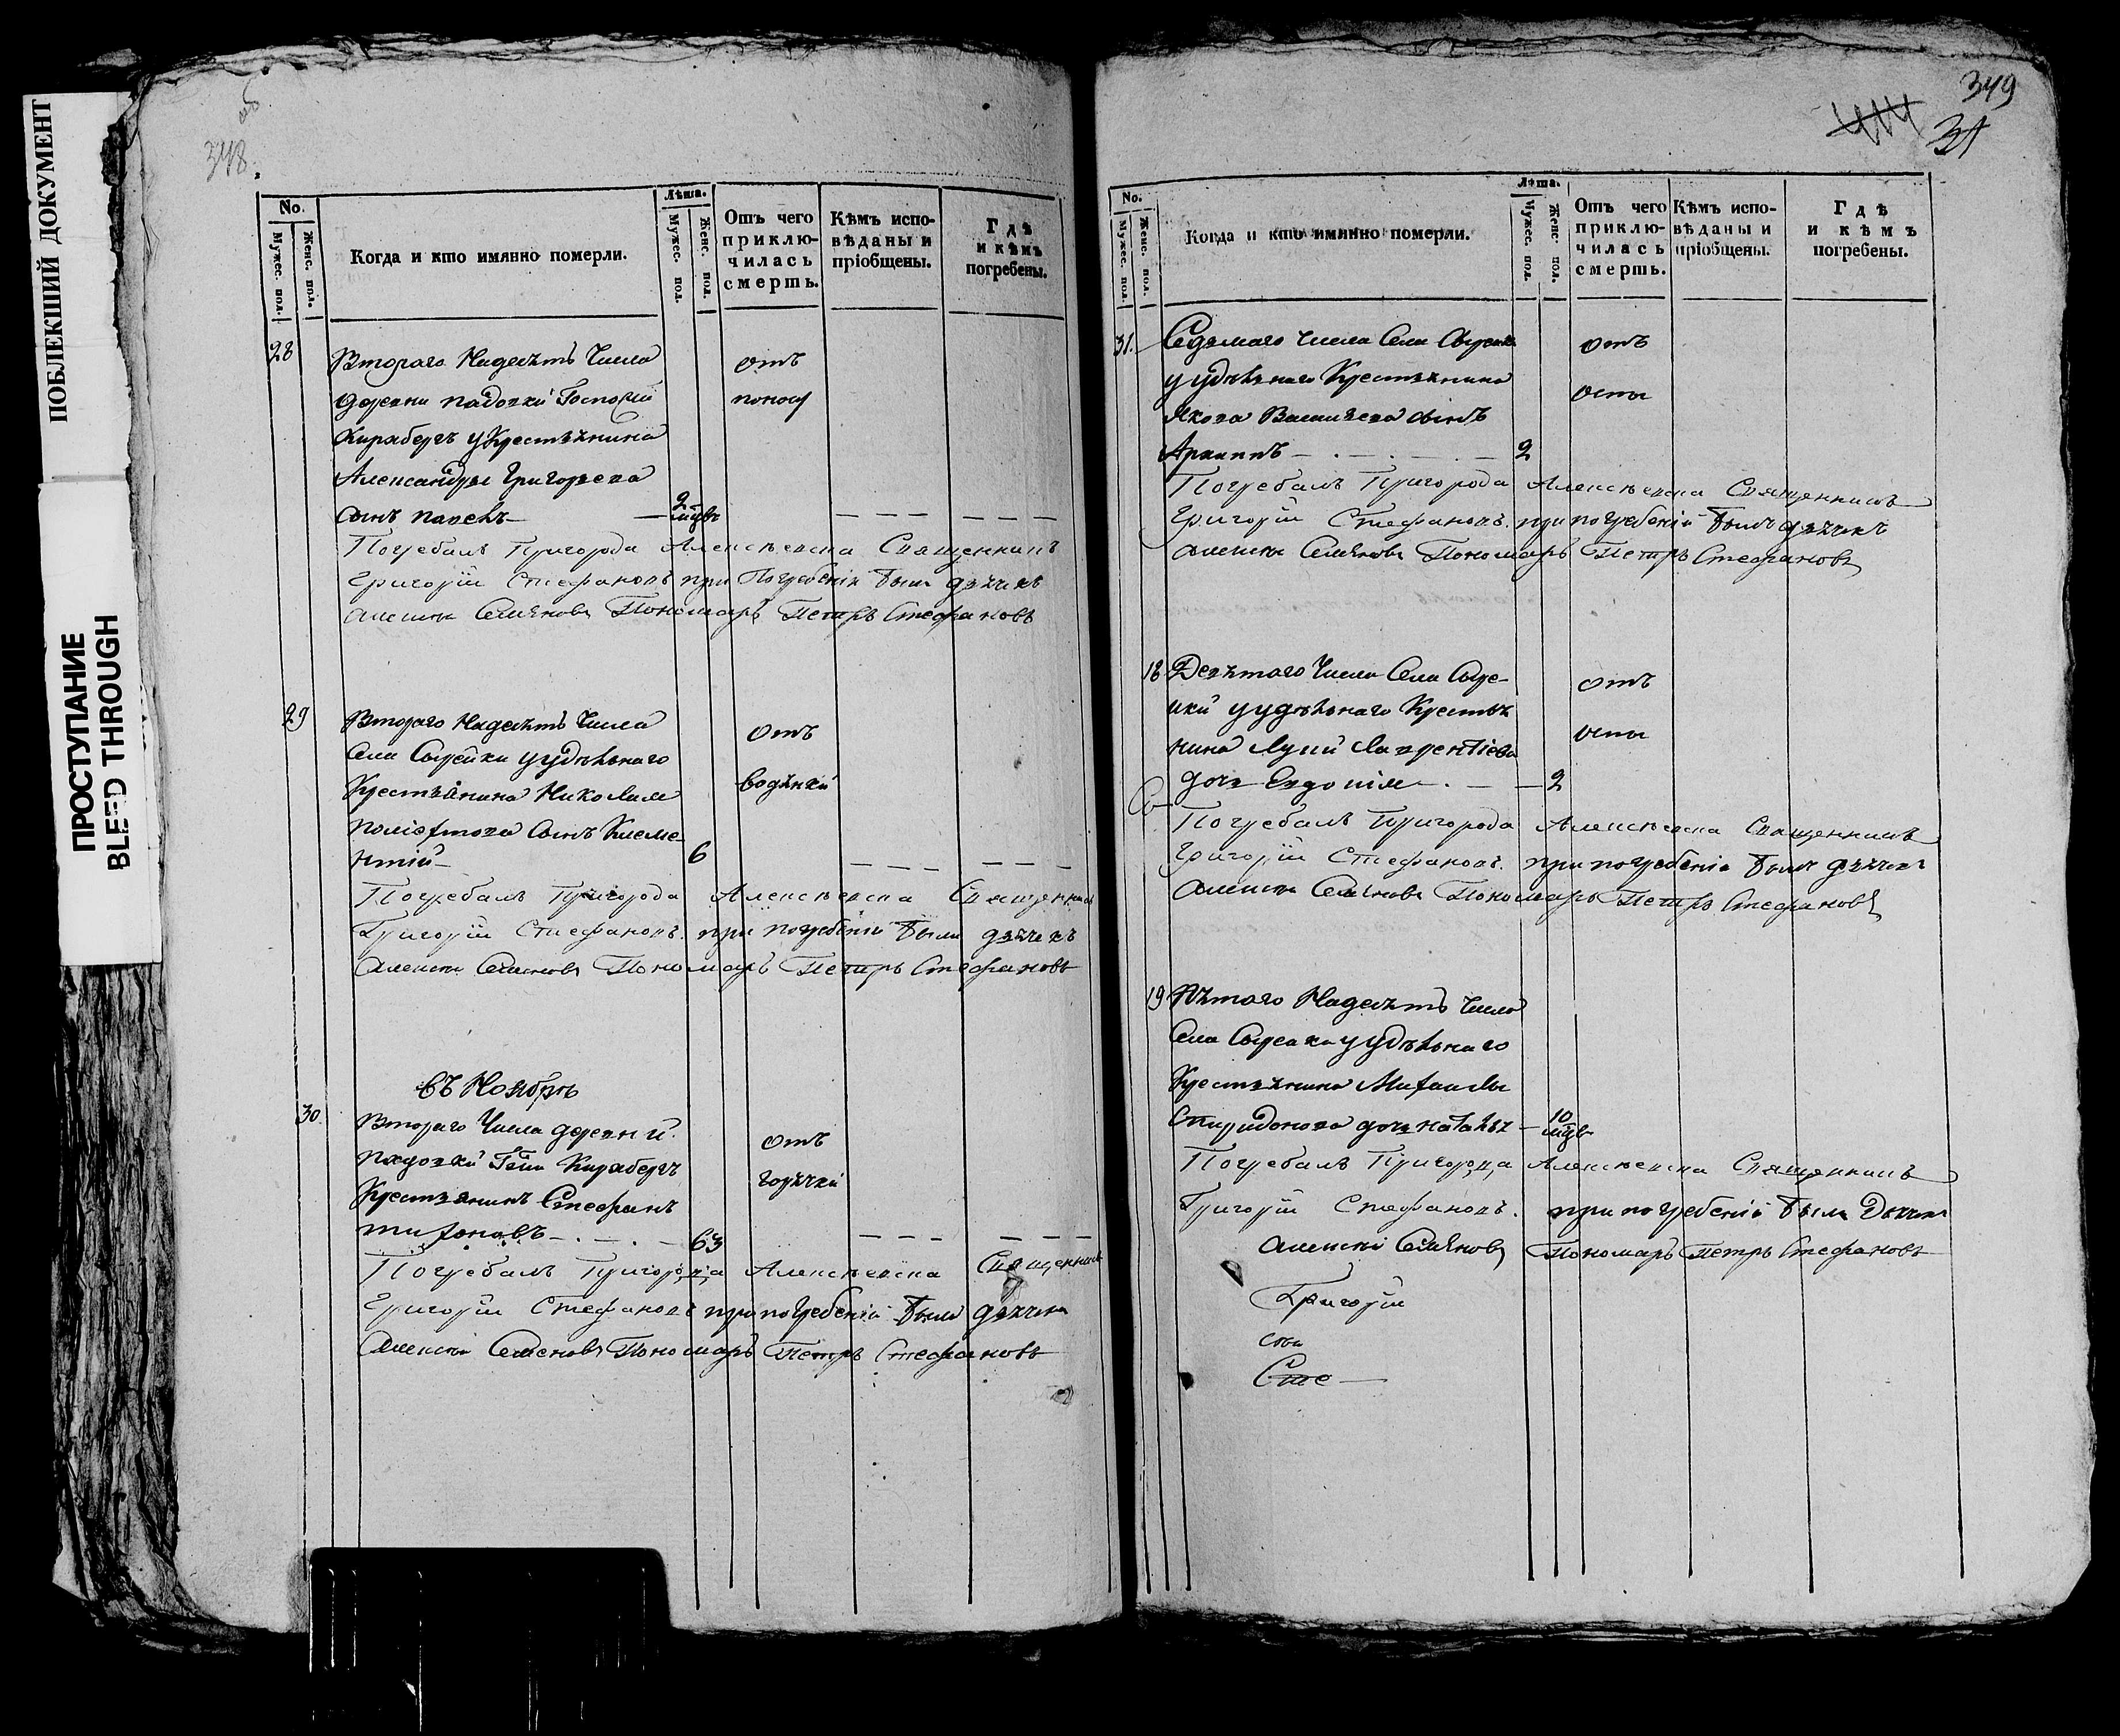 ПОБЛЕКШИЙ ДОКУМЕНТ
ПРОСТУПАНИЕ
BLEED THROUGH
348
об
No.
Мужес. пол.
Женс. пол.
Когда и кто имянно померли.
Лѣта.
Мужес. пол.
Женс. пол.
Отъ чего приклю-чилась смерть.
Кѣмъ испо-вѣданы и пріобщены.
Гдѣ и кѣмъ погребены.
28
Втораго Надесять Числа отъ
деревни Падовки Госпожи поносу
Кирхбергъ у Крестьянина
Александры Григорьева
сынъ Павелъ 9 мцвъ
Погребалъ Пригорода Алексѣевска Священникъ
Григорій Стефановъ при Погребеніи были дьячекъ
Алексѣй Семѣновъ Пономарь Петръ Стефановъ
29
Втораго Надесять Числа отъ
Села Сырейки у удѣльнаго
Крестьянина Николая водянки
Поліэктова Сынъ Климе-
нтій 6
Погребалъ Пригорода Алексѣевска Священникъ
Григорій Стефановъ при погребеніи были дьячекъ
Алексѣй Семеновъ Пономарь Петръ Стефановъ
въ Ноябрѣ
30.
Втораго Числа деревни отъ
Падовки Гжи Кирхбергъ горячки
Крестьянинъ Стефанъ
Тихоновъ 63
Погребалъ Пригорода Алексѣевска Священникъ
Григорій Стефановъ при погребеніи были дьячекъ
Алексѣй Семеновъ Пономарь Петръ Стефановъ
349
31
No.
Мужес. пол.
Женс. пол.
Когда и кто имянно померли.
Лѣта.
Мужес. пол.
Женс. пол.
Отъ чего приклю-чилась смерть.
Кѣмъ испо-вѣданы и пріобщены.
Гдѣ и кѣмъ погребены.
31.
Седмаго Числа Села Сырейки отъ
у удѣльнаго Крестьянина оспы
Якова Васильева сынъ
Архиппъ 2
Погребалъ Пригорода Алексѣевска Священникъ
Григорій Стефановъ. при погребеніи были дьячекъ
Алексѣй Семѣновъ Пономарь Петръ Стефановъ
18
Девятаго Числа Села Сыре- отъ
йки у удѣльнаго Крестья оспы
нина Луки Лаврентіева
дочь Евдокія 2
Погребалъ Пригорода Алексѣевска Священникъ
Григорій Стефановъ. при погребеніи были дьячекъ
Алексѣй Семѣновъ Пономарь Петръ Стефановъ
19
Пятаго Надесять Числа
Села Сырейки у удѣльнаго
Крестьянина Михайлы
Спиридонова дочь Наталья 10 мцвъ
Погребалъ Пригорода Алексѣевска Священникъ
Григорій Стефановъ. при погребеніи были Дьячекъ
Алексѣй Семѣновъ Пономарь Петръ Стефановъ
Григорій
Сте